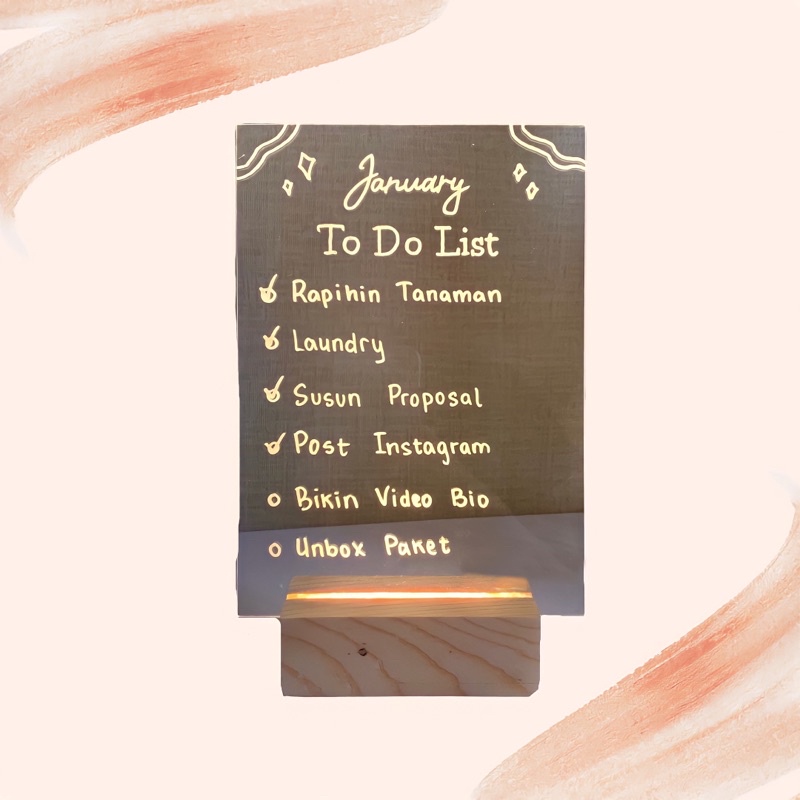 January
To Do List
Rapihin Tanaman
Laundry
Susun Proposal
Post Instagram
Bikin Video Bio
Unbox Paket